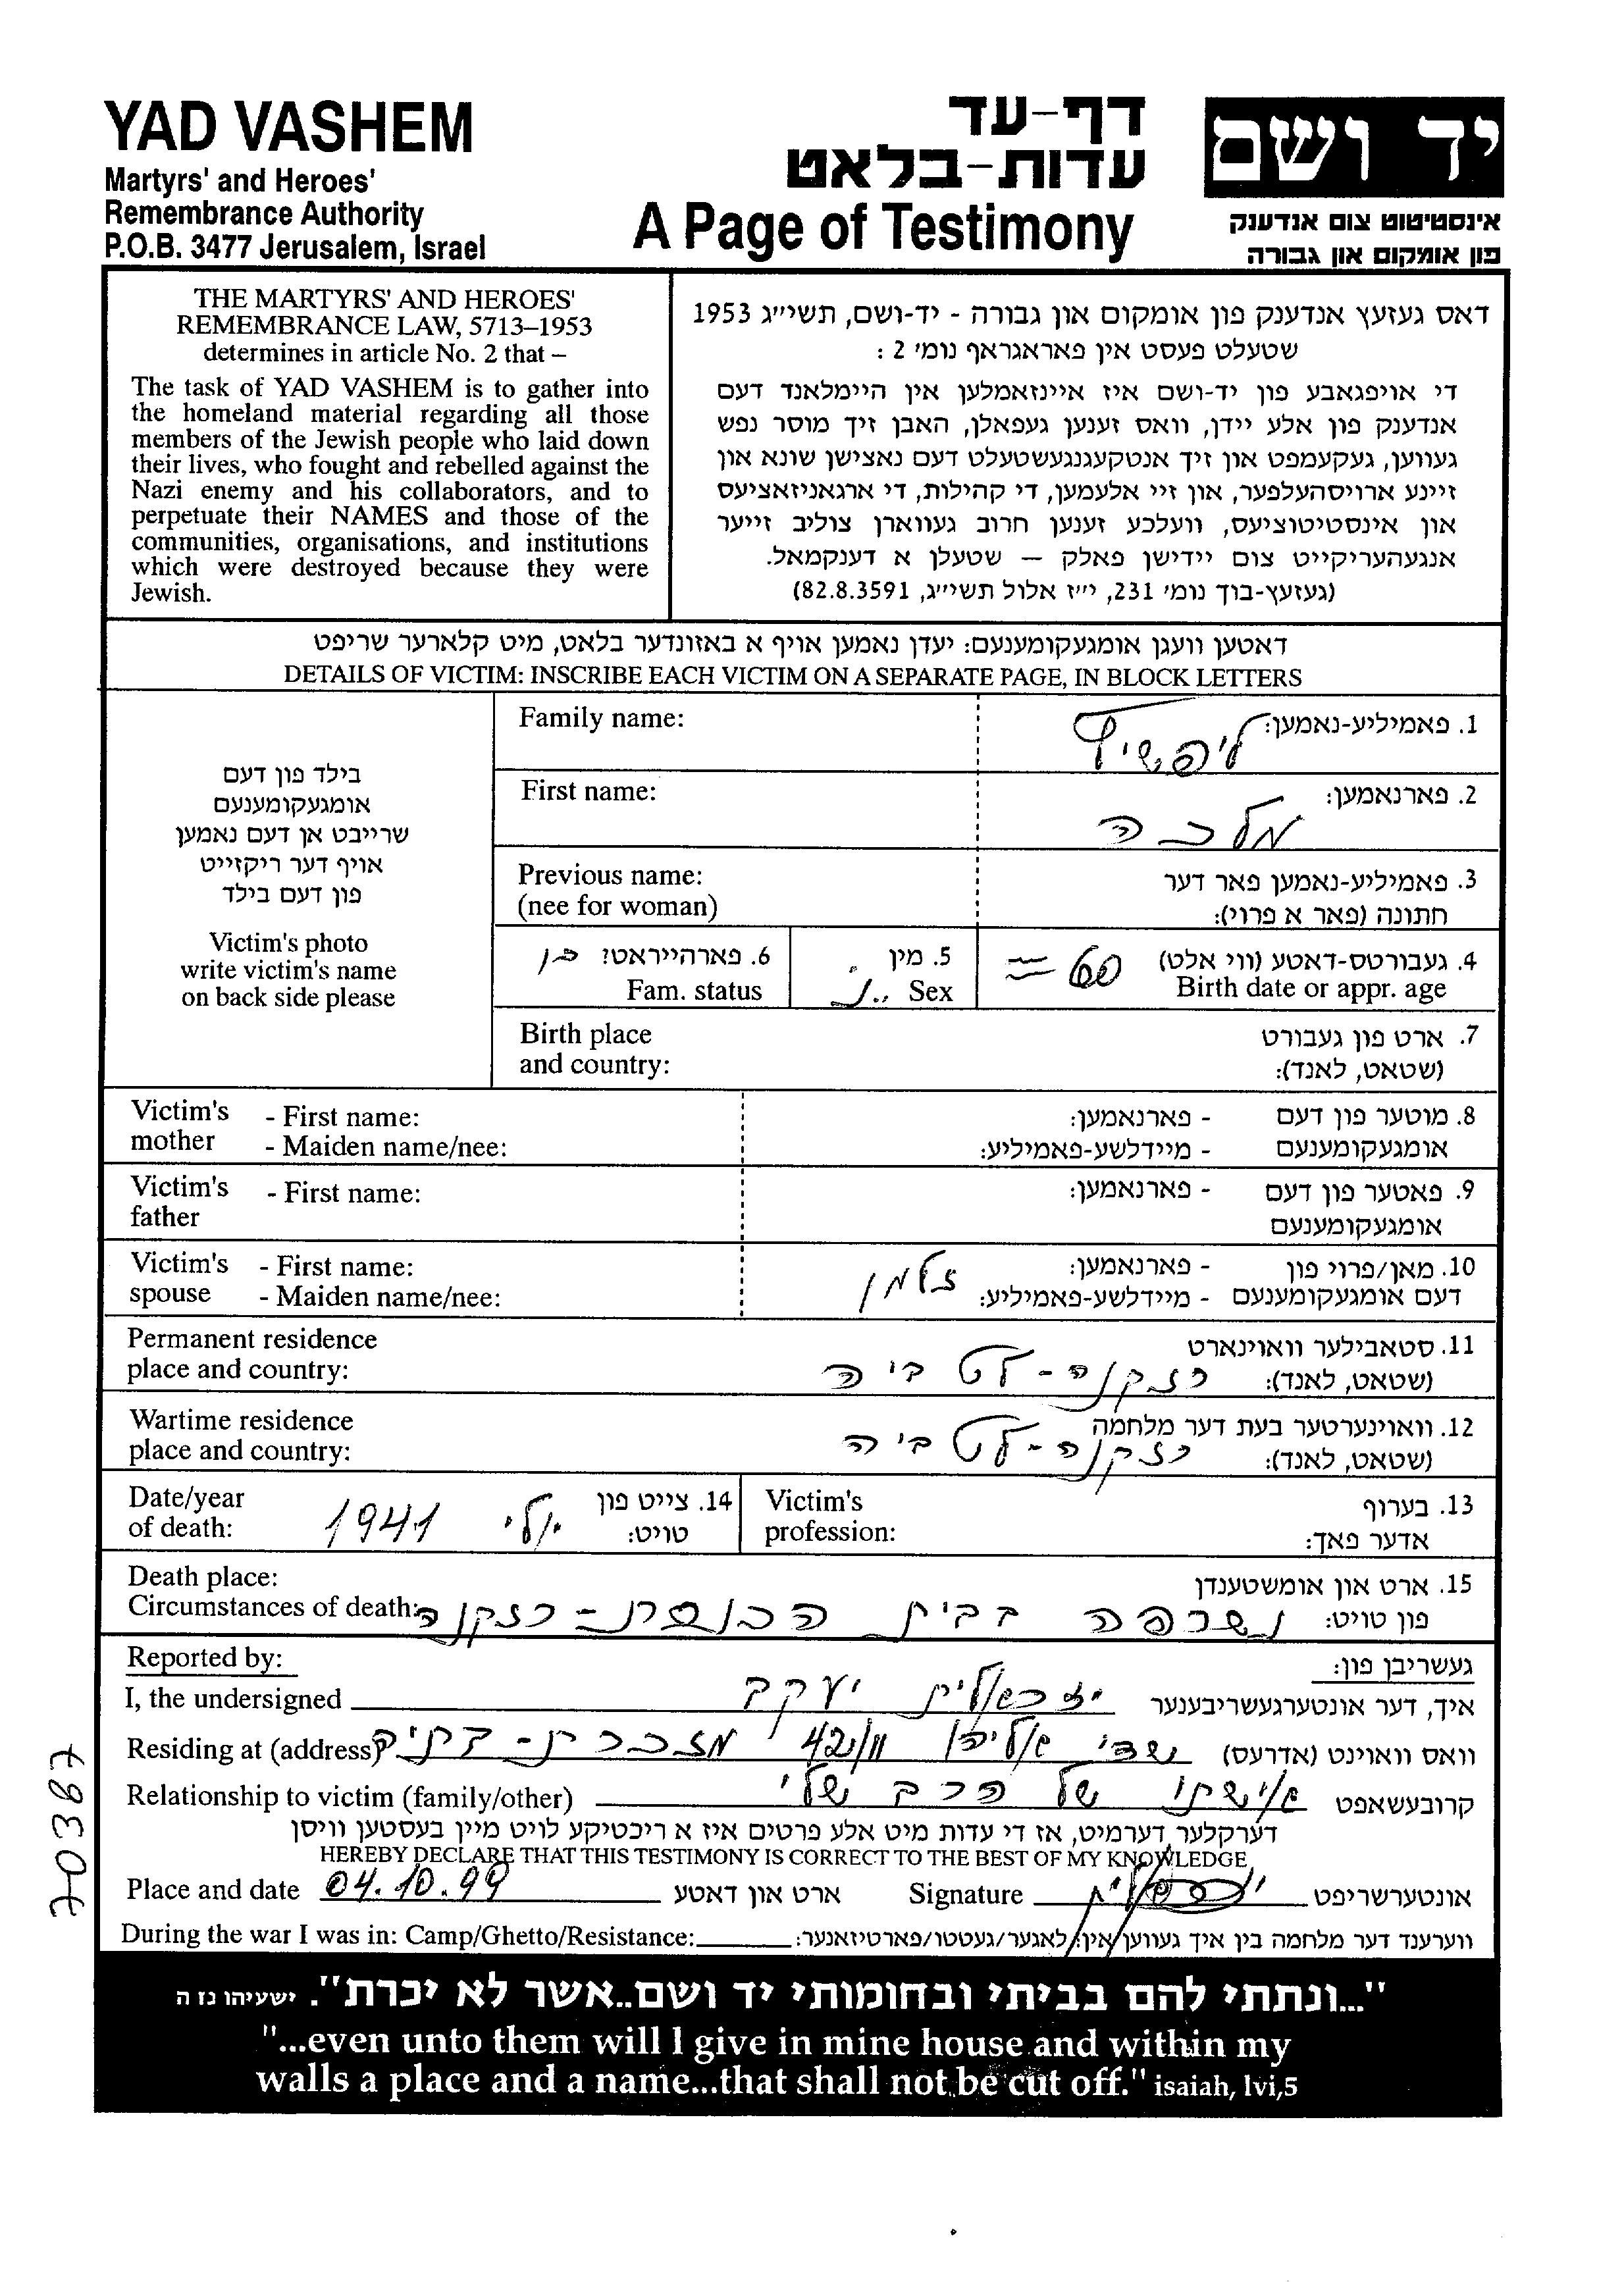 YAD VASHEM
Martyrs' and Heroes'
Remembrance Authority
P.O.B. 3477 Jerusalem, Israel
דף-עד
עדות-בלאט
A Page of Testimony
יד ושם
אינסטיטוט צום אנדענק
פון אומקום און גבורה
THE MARTYRS' AND HEROES'
REMEMBRANCE LAW, 5713–1953
determines in article No. 2 that –
The task of YAD VASHEM is to gather into
the homeland material regarding all those
members of the Jewish people who laid down
their lives, who fought and rebelled against the
Nazi enemy and his collaborators, and to
perpetuate their NAMES and those of the
communities, organisations, and institutions
which were destroyed because they were
Jewish.
דאס געזעץ אנדענק פון אומקום און גבורה - יד-ושם, תשי״ג 1953
שטעלט פעסט אין פאראגראף נומ׳ 2 :
די אויפגאבע פון יד-ושם איז איינזאמלען אין היימלאנד דעם
אנדענק פון אלע יידן, וואס זענען געפאלן, האבן זיך מוסר נפש
געווען, געקעמפט און זיך אנטקעגנגעשטעלט דעם נאצישן שונא און
זיינע ארויסהעלפער, און זיי אלעמען, די קהילות, די ארגאניזאציעס
און אינסטיטוציעס, וועלכע זענען חרוב געווארן צוליב זייער
אנגעהעריקייט צום יידישן פאלק – שטעלן א דענקמאל.
(געזעץ-בוך נומ׳ 231, י״ז אלול תשי״ג, 82.8.3591)
דאטען וועגן אומגעקומענעם: יעדן נאמען אויף א באזונדער בלאט, מיט קלארער שריפט
DETAILS OF VICTIM: INSCRIBE EACH VICTIM ON A SEPARATE PAGE, IN BLOCK LETTERS
בילד פון דעם
אומגעקומענעם
שרייבט אן דעם נאמען
אויף דער ריקזייט
פון דעם בילד
Victim's photo
write victim's name
on back side please
Family name:
1. פאמיליע-נאמען: ליפשיץ
First name:
2. פארנאמען: מלכה
Previous name:
(nee for woman)
3. פאמיליע-נאמען פאר דער
חתונה (פאר א פרוי):
4. געבורטס-דאטע (ווי אלט) ≈ 60
Birth date or appr. age
5. מין
Sex נ.
6. פארהייראט? כן
Fam. status
Birth place
and country:
7. ארט פון געבורט
(שטאט, לאנד):
Victim's - First name:
mother - Maiden name/nee:
8. מוטער פון דעם - פארנאמען:
אומגעקומענעם - מיידלשע-פאמיליע:
Victim's - First name:
father
9. פאטער פון דעם - פארנאמען:
אומגעקומענעם
Victim's - First name:
spouse - Maiden name/nee:
10. מאן/פרוי פון - פארנאמען: זלמן
דעם אומגעקומענעם - מיידלשע-פאמיליע:
Permanent residence
place and country:
11. סטאבילער וואוינארט
(שטאט, לאנד): רזקנה - לטביה
Wartime residence
place and country:
12. וואוינערטער בעת דער מלחמה
(שטאט, לאנד): רזקנה - לטביה
Date/year
of death:
14. צייט פון
טויט: יולי 1941
Victim's
profession:
13. בערוף
אדער פאך:
Death place:
Circumstances of death:
15. ארט און אומשטענדן
פון טויט: נשרפה בבית הכנסת - רזקנה
Reported by:
געשריבן פון:
I, the undersigned
איך, דער אונטערגעשריבענער יעקב
Residing at (address)
וואס וואוינט (אדרעס) 42/11 מזכרת - בתיה
Relationship to victim (family/other)
קרובעשאפט אישתו של הרב שלי
דערקלער דערמיט, אז די עדות מיט אלע פרטים איז א ריכטיקע לויט מיין בעסטען וויסן
HEREBY DECLARE THAT THIS TESTIMONY IS CORRECT TO THE BEST OF MY KNOWLEDGE
Place and date 04.10.99 ארט און דאטע
Signature אונטערשריפט
During the war I was in: Camp/Ghetto/Resistance:
ווערענד דער מלחמה בין איך געווען אין: לאגער/געטטו/פארטיזאנער:
"...ונתתי להם בביתי ובחומותי יד ושם..אשר לא יכרת". ישעיהו נז ה
"...even unto them will I give in mine house and within my
walls a place and a name...that shall not be cut off." isaiah, lvi,5